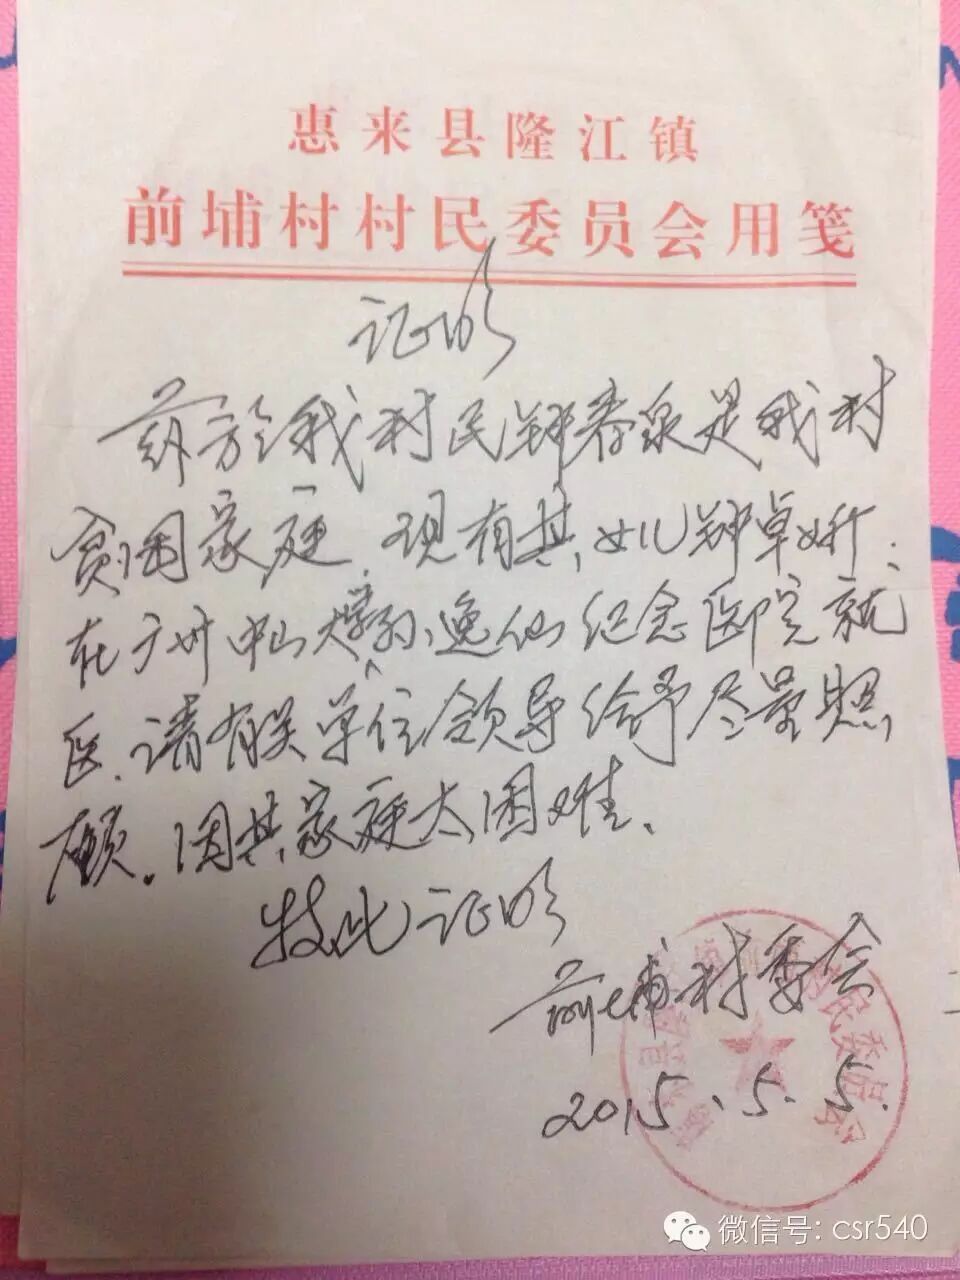 惠来县隆江镇
前埔村村民委员会用笺
证明
兹於我村民郑春泉是我村
贫困家庭.现有其女儿郑卓妍:
在广州中山大学孙逸仙纪念医院就
医.请有关单位领导给予尽量照
顾.因其家庭太困难.
特此证明
前埔村委会
2015.5.5.
村民委员会
微信号: csr540